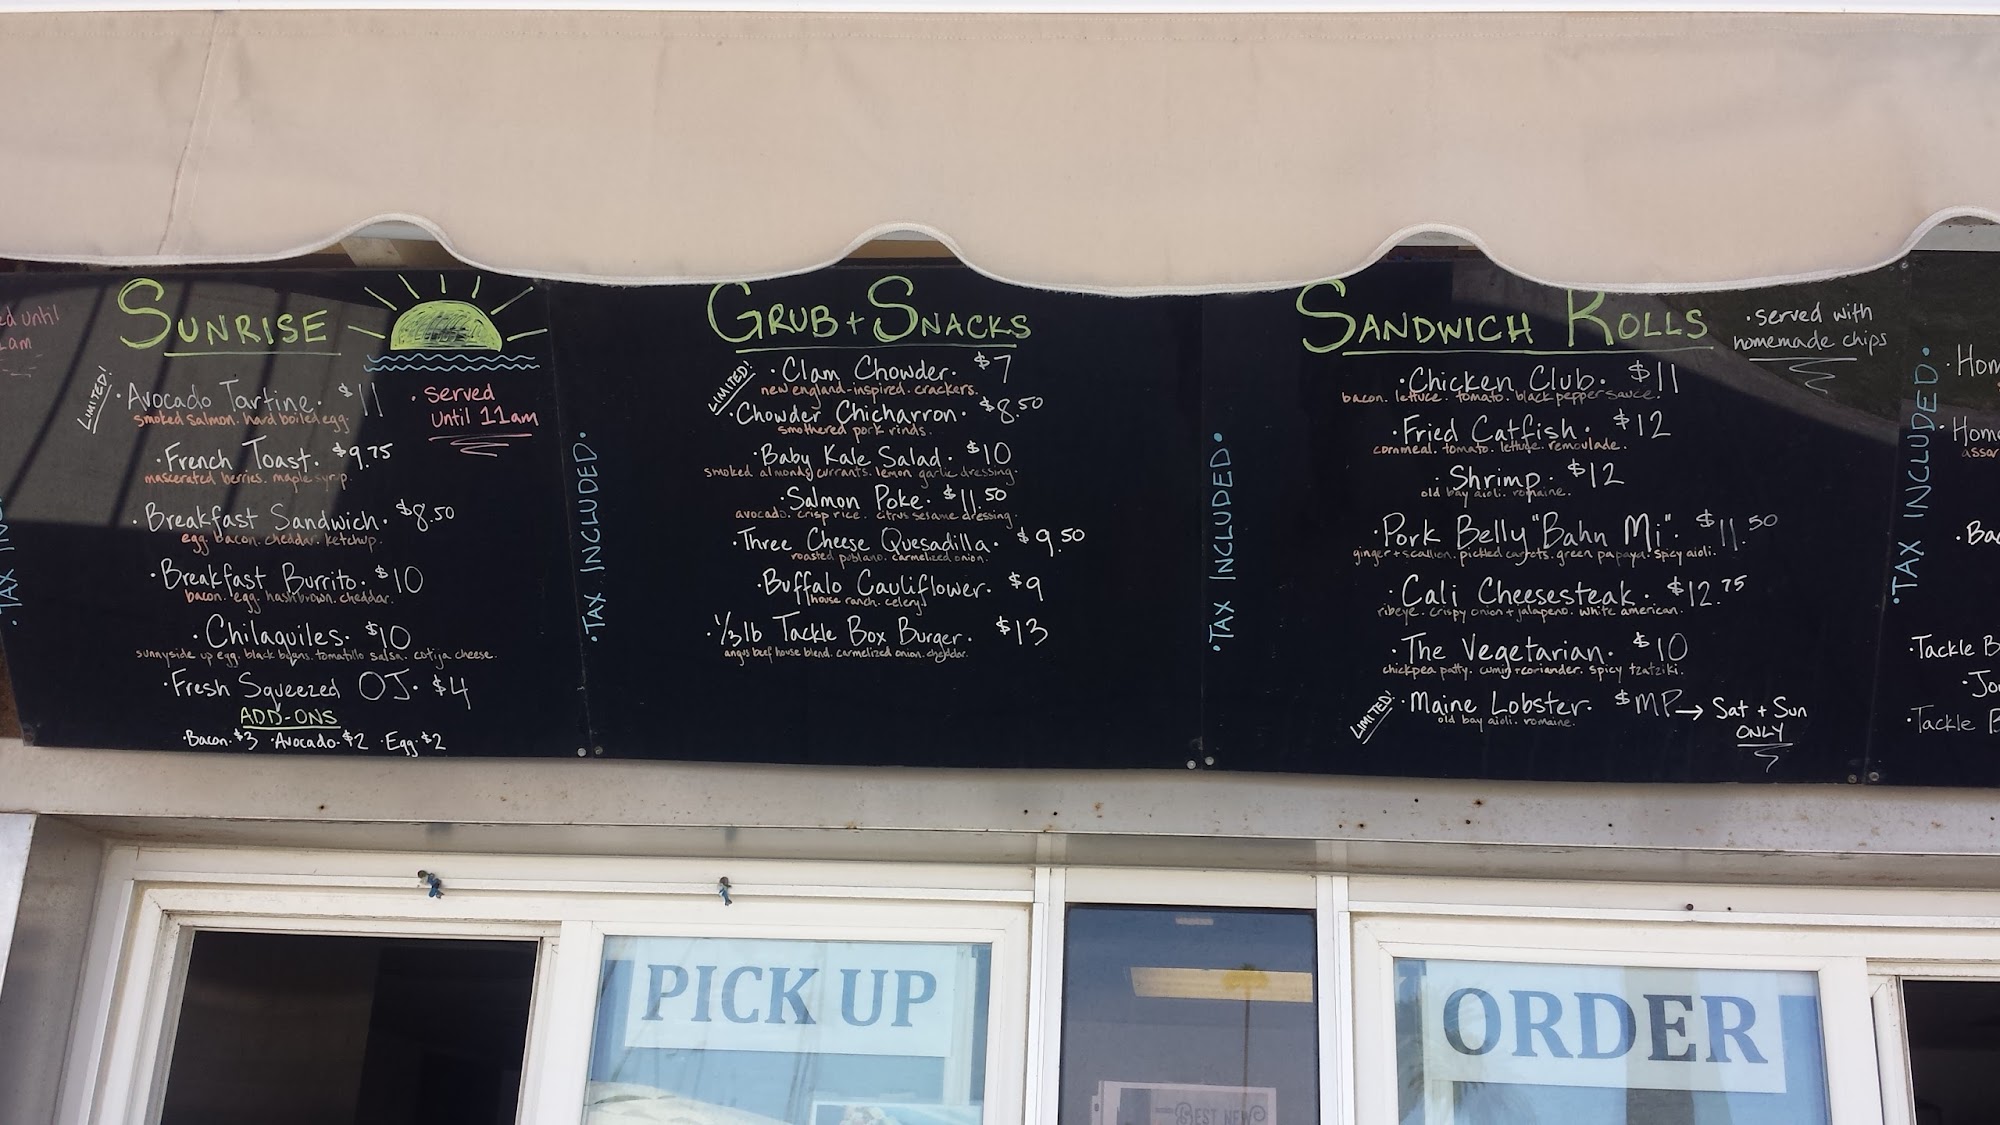 ed until
am
TAX INC
SUNRISE
LIMITED!
· Avocado Tartine. $11
smoked salmon. hard boiled egg.
· served
until 11am
· French Toast. $9.75
mascerated berries. maple syrup.
· Breakfast Sandwich. $8.50
egg. bacon. cheddar. ketchup.
· Breakfast Burrito. $10
bacon. egg. hashbrown. cheddar.
· Chilaquiles. $10
sunnyside up egg. black beans. tomatillo salsa. cotija cheese.
· Fresh Squeezed OJ. $4
ADD-ONS
· Bacon. $3 · Avocado. $2 · Egg. $2
· TAX INCLUDED ·
GRUB + SNACKS
LIMITED!
· Clam Chowder. $7
new england-inspired. crackers.
· Chowder Chicharron. $8.50
smothered pork rinds.
· Baby Kale Salad. $10
smoked almonds. currants. lemon garlic dressing.
· Salmon Poke. $11.50
avocado. crisp rice. citrus sesame dressing.
· Three Cheese Quesadilla. $9.50
roasted poblano. carmelized onion.
· Buffalo Cauliflower. $9
house ranch. celery.
· 1/3 lb Tackle Box Burger. $13
angus beef house blend. carmelized onion. cheddar.
· TAX INCLUDED ·
SANDWICH ROLLS
· served with
homemade chips
· Chicken Club. $11
bacon. lettuce. tomato. black pepper sauce.
· Fried Catfish. $12
cornmeal. tomato. lettuce. remoulade.
· Shrimp. $12
old bay aioli. romaine.
· Pork Belly "Bahn Mi". $11.50
ginger + scallion. pickled carrots. green papaya. spicy aioli.
· Cali Cheesesteak. $12.75
ribeye. crispy onion + jalapeno. white american.
· The Vegetarian. $10
chickpea patty. cumin + coriander. spicy tzatziki.
LIMITED!
· Maine Lobster. $MP → Sat + Sun
ONLY
old bay aioli. romaine.
· TAX INCLUDED ·
· Hom
· Hom
assor
· Ba
· Tackle B
· Jo
· Tackle B
PICK UP
ORDER
BEST NEW